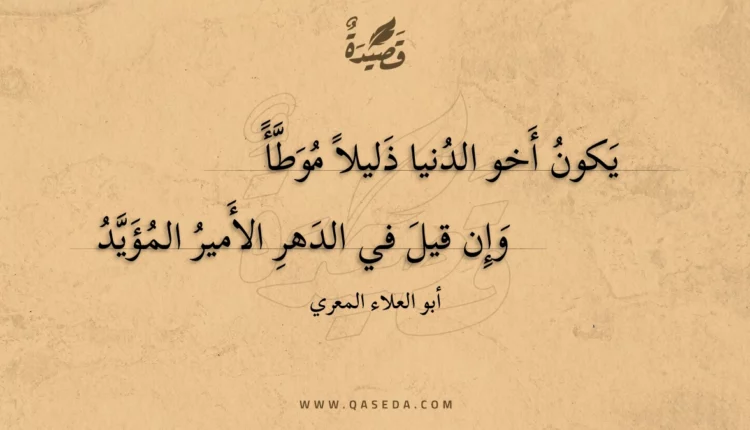 قَصِيدَةٌ
يَكونُ أَخو الدُنيا ذَليلاً مُوَطَّأً
وَإِن قيلَ في الدَهرِ الأَميرُ المُؤَيَّدُ
أبو العلاء المعري
WWW.QASEDA.COM